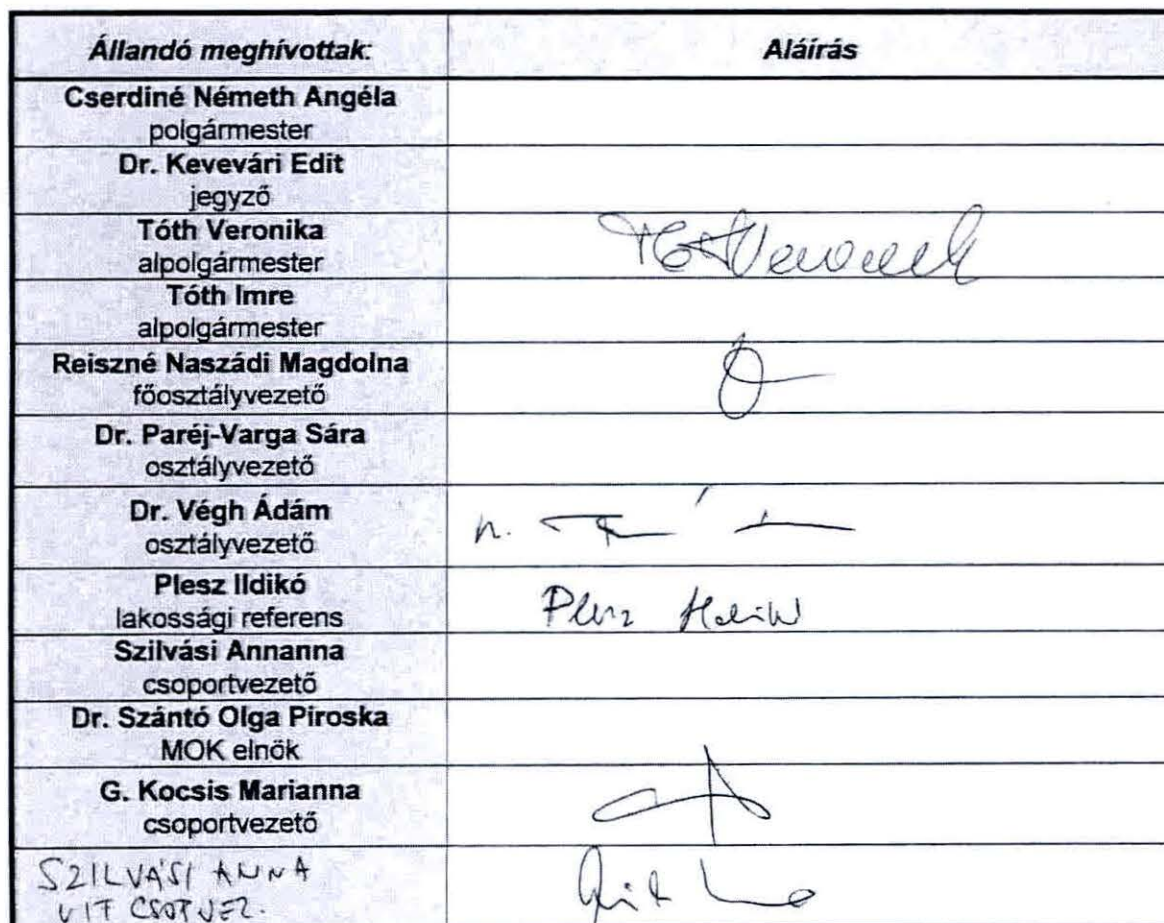 Állandó meghívottak: Aláírás
Cserdiné Németh Angéla
polgármester
Dr. Kevevári Edit
jegyző
Tóth Veronika
alpolgármester
Tóth Imre
alpolgármester
Reiszné Naszádi Magdolna
főosztályvezető
Dr. Paréj-Varga Sára
osztályvezető
Dr. Végh Ádám
osztályvezető
Plesz Ildikó
lakossági referens
Szilvási Annanna
csoportvezető
Dr. Szántó Olga Piroska
MOK elnök
G. Kocsis Marianna
csoportvezető
SZILVÁSI ANNA
VIT CSOPVEZ.